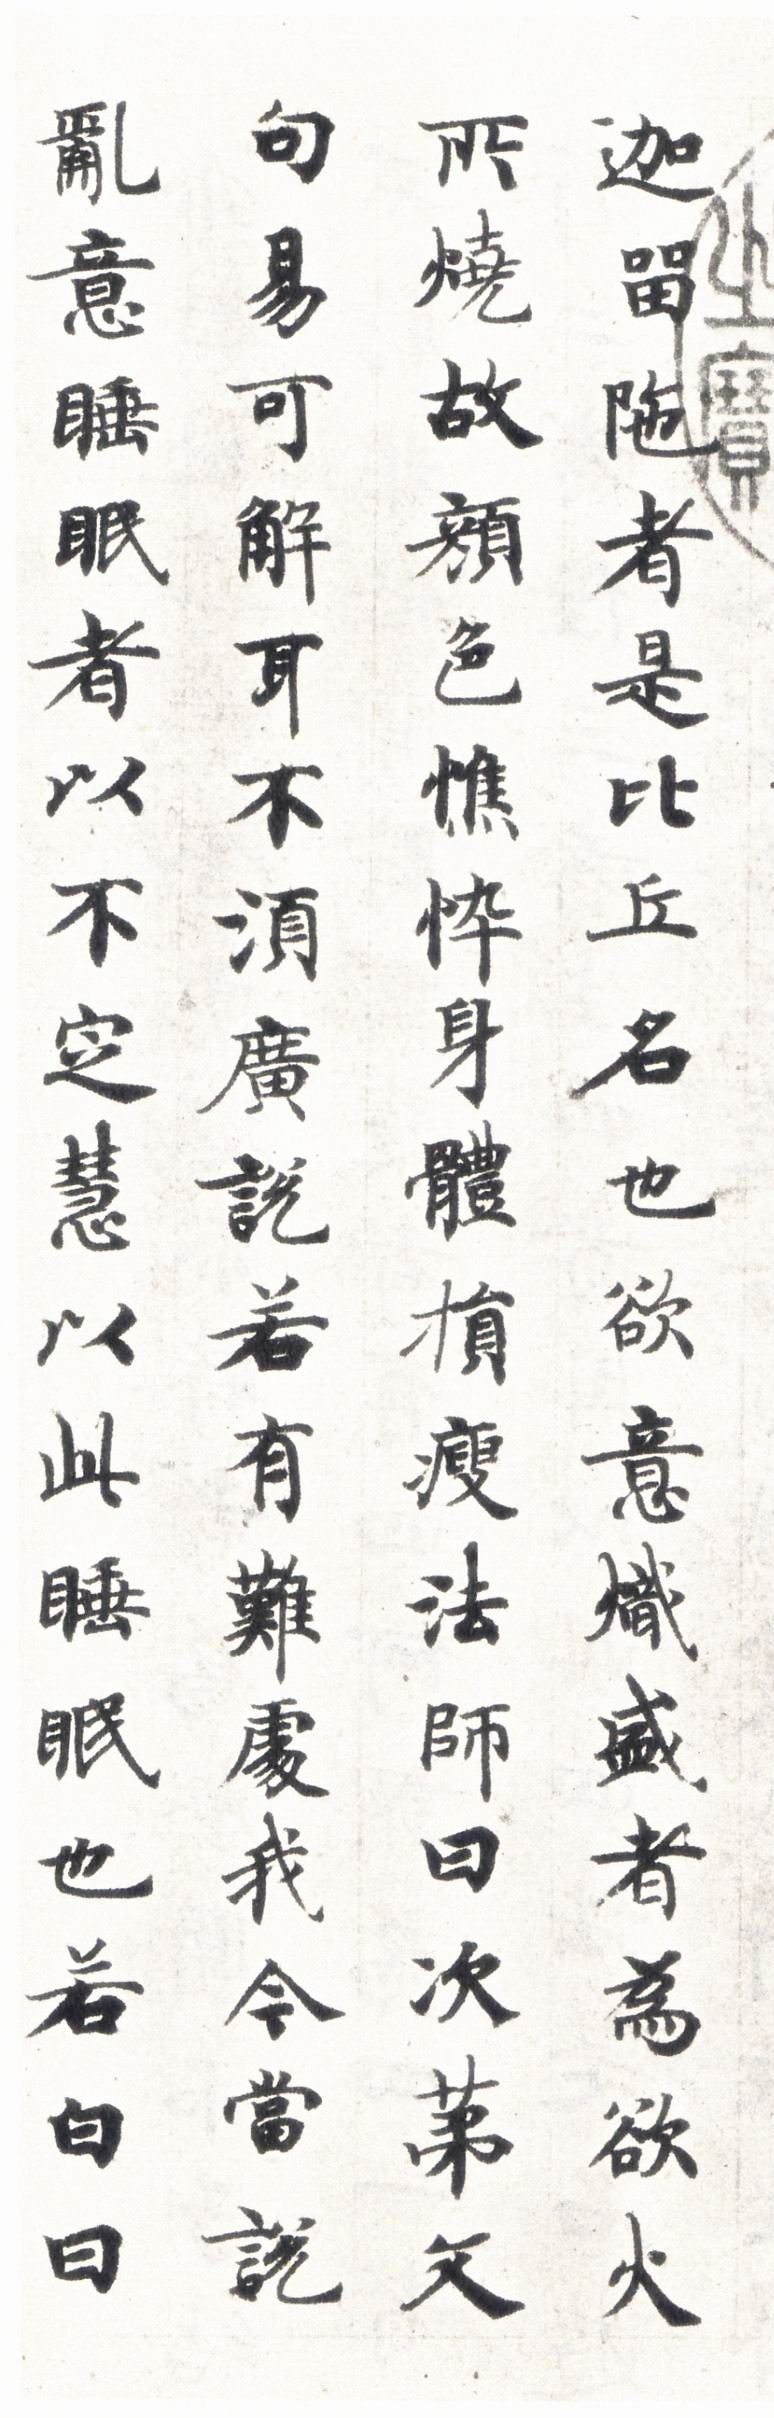 迦留陁者是比丘名也欲意熾盛者為欲火
所燒故顏色憔悴身體損瘦法師曰次第文
句易可解耳不須廣說若有難處我今當說
亂意睡眠者以不定慧以此睡眠也若白日